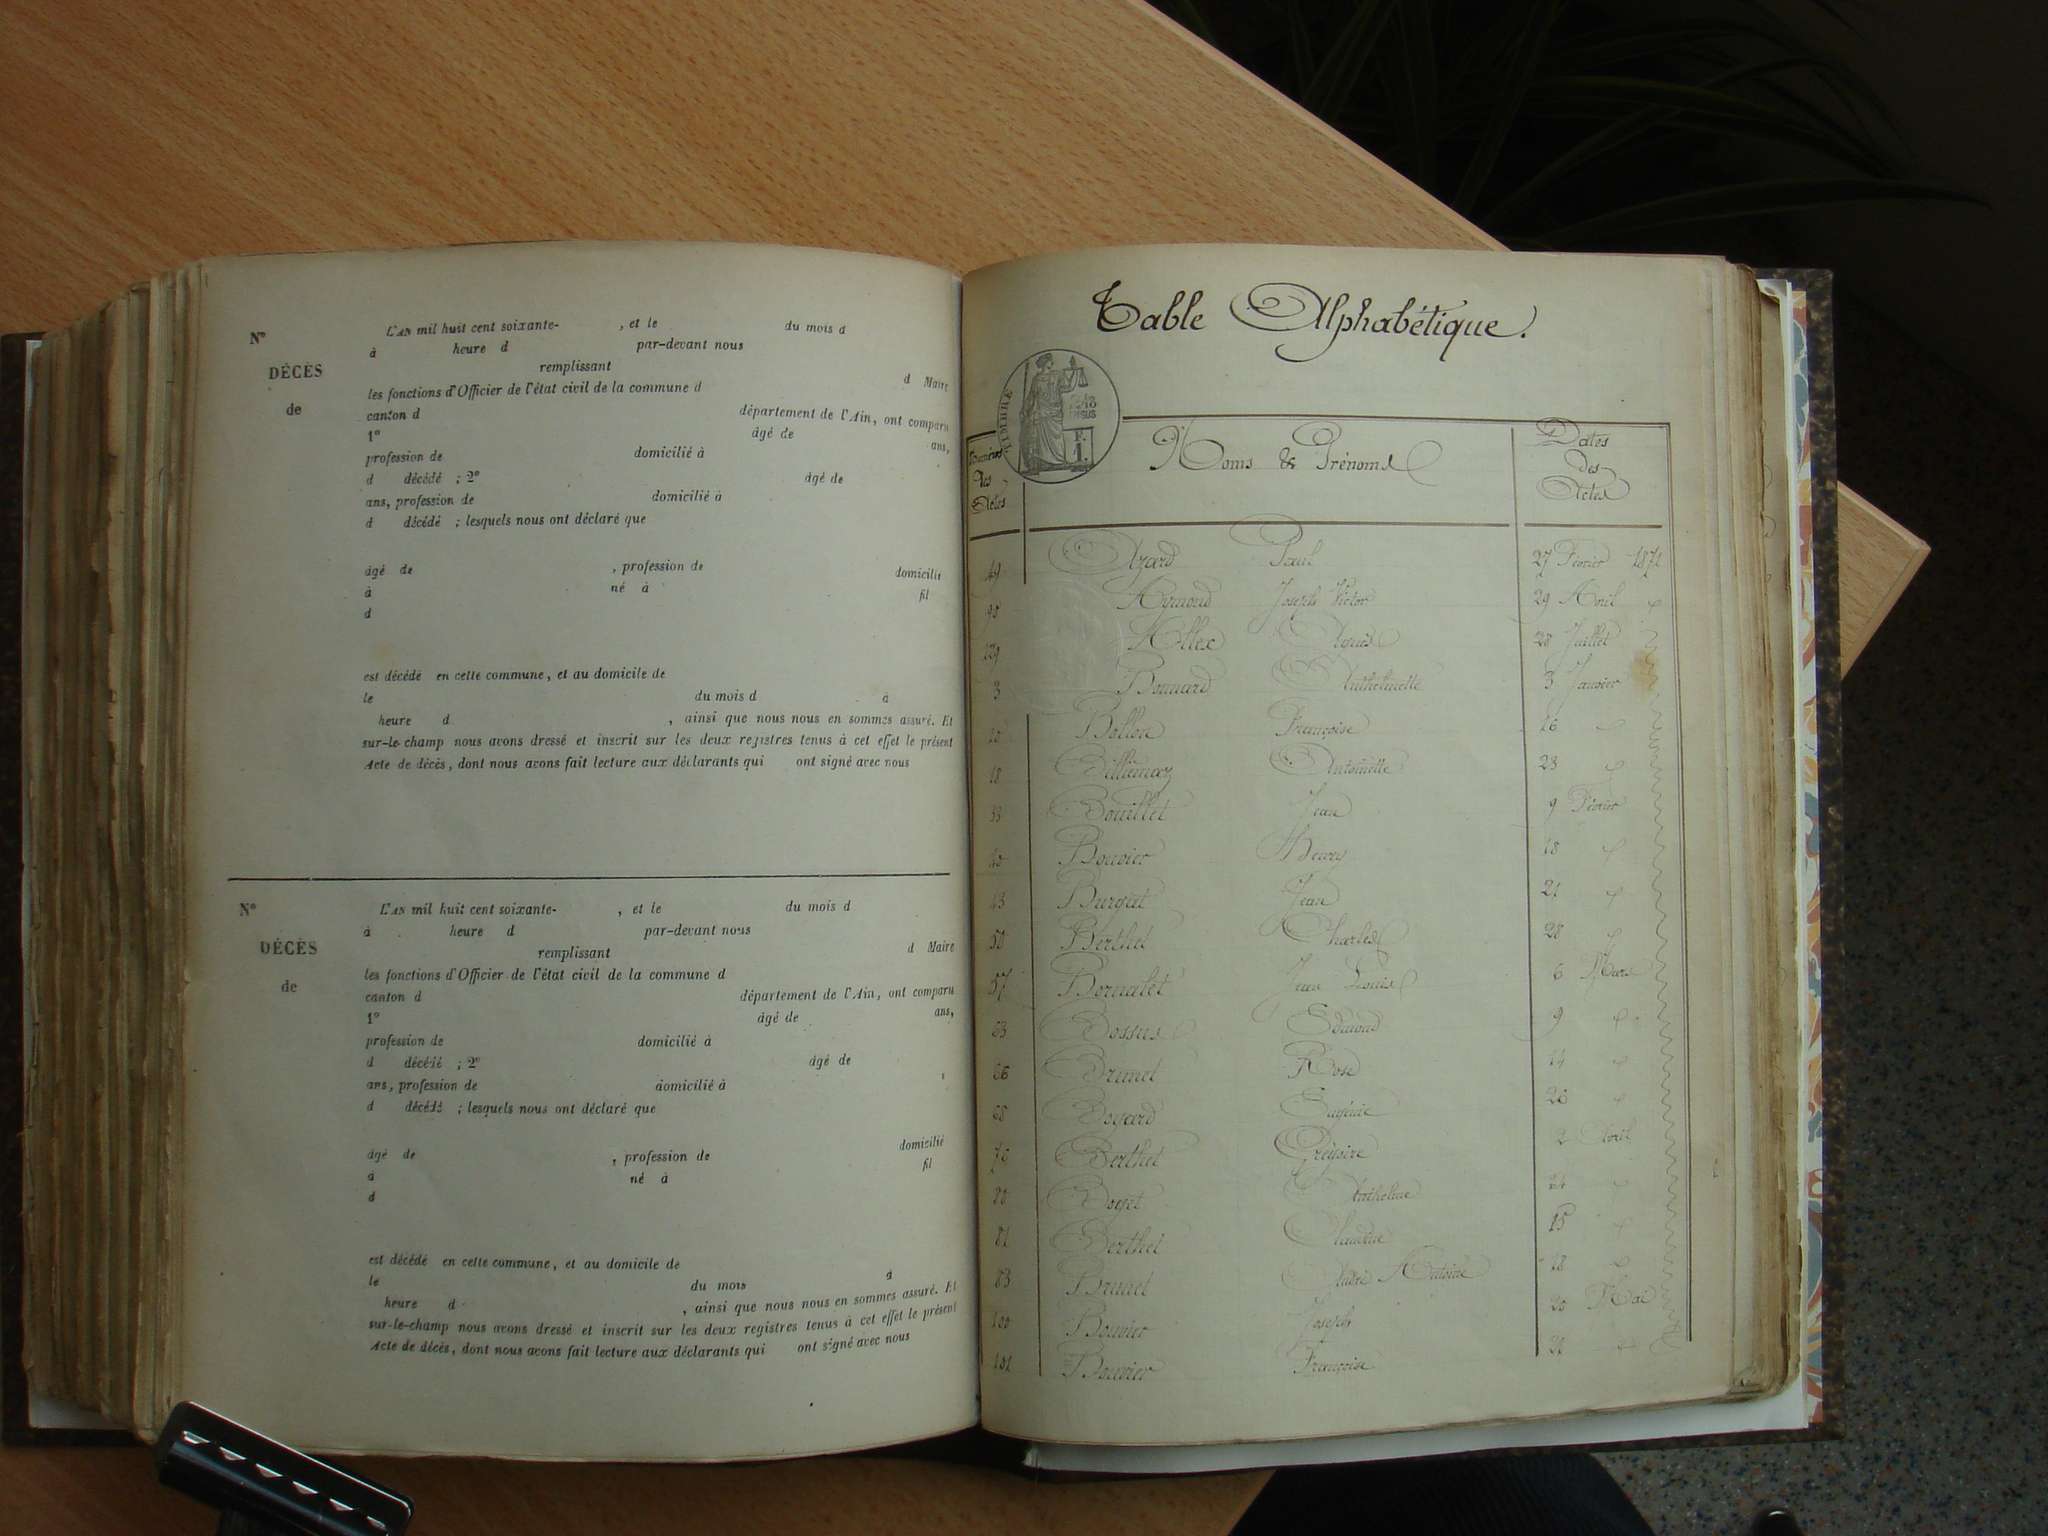 N° L'AN mil huit cent soixante- , et le du mois d
à heure d par-devant nous
DÉCÈS remplissant
d Maire
les fonctions d'Officier de l'état civil de la commune d
de
canton d département de l'Ain, ont comparu
1° âgé de ans,
profession de domicilié à
d décédé ; 2° âgé de
ans, profession de domicilié à
d décédé ; lesquels nous ont déclaré que
âgé de , profession de domicilié
à né à fil
d
est décédé en cette commune, et au domicile de
le du mois d à
heure d , ainsi que nous nous en sommes assuré. Et
sur-le-champ nous avons dressé et inscrit sur les deux registres tenus à cet effet le présent
Acte de décès, dont nous avons fait lecture aux déclarants qui ont signé avec nous
N° L'AN mil huit cent soixante- , et le du mois d
à heure d par-devant nous
DÉCÈS remplissant d Maire
les fonctions d'Officier de l'état civil de la commune d
de
canton d département de l'Ain, ont comparu
1° âgé de ans,
profession de domicilié à
d décédé ; 2° âgé de
ans, profession de domicilié à
d décédé ; lesquels nous ont déclaré que
âgé de , profession de domicilié
à né à fil
d
est décédé en cette commune, et au domicile de
le du mois à
heure d , ainsi que nous nous en sommes assuré. Et
sur-le-champ nous avons dressé et inscrit sur les deux registres tenus à cet effet le présent
Acte de décès, dont nous avons fait lecture aux déclarants qui ont signé avec nous
Table Alphabétique.
TIMBRE
F.
1.
Numéros des Actes
Noms & Prénoms
Dates des Actes
49 Azard Paul 27 Février 1871
95 Aymond Joseph Victor 29 Avril
129 Allex 28 Juillet
3 Bonnard Anthelmette 3 Janvier
Bollon Françoise 16
18 Antoinette 23
33 Bouillet Jean 9 Février
40 Bouvier Henry 18
43 Burquet Jean 21
50 Berthet Charles 28
57 Bornatet Jean Louis 6 Mars
63 Bossus Edmond 9
66 Brunet Rose 14
68 Boyard Eugénie 26
76 Berthet 2 Avril
80 Anthelme
81 Berthet Claudine 15
83 Brunet André Antoine 18
100 Bouvier Joseph 20 Mai
101 Bouvier Françoise